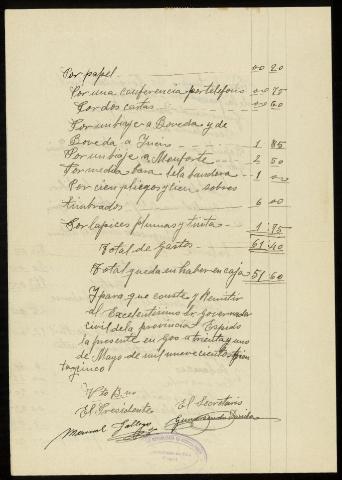 Por papel 00 20
Por una conferencia por telefono 00 75
Por dos cartas 00 60
Por un biaje a Boveda y de
Boveda a Incio 1 85
Por un biaje a Monforte 2 50
Por media bara tela bandera 1 00
Por cien pliegos y cien sobres
timbrados 6 00
Por lapices plumas y tinta 1 75
Total de Gastos 61 40
Total queda en haber en caja 51 60
Y para que conste y Remitir
al Excelentisimo Sr. Governador
civil de la provincia Espido
la presente en Goo a trienta y uno
de Mayo de mil nuevecientos trien
taycinco
Vto Bno
El Presidente El Secretario
Manuel Gallego